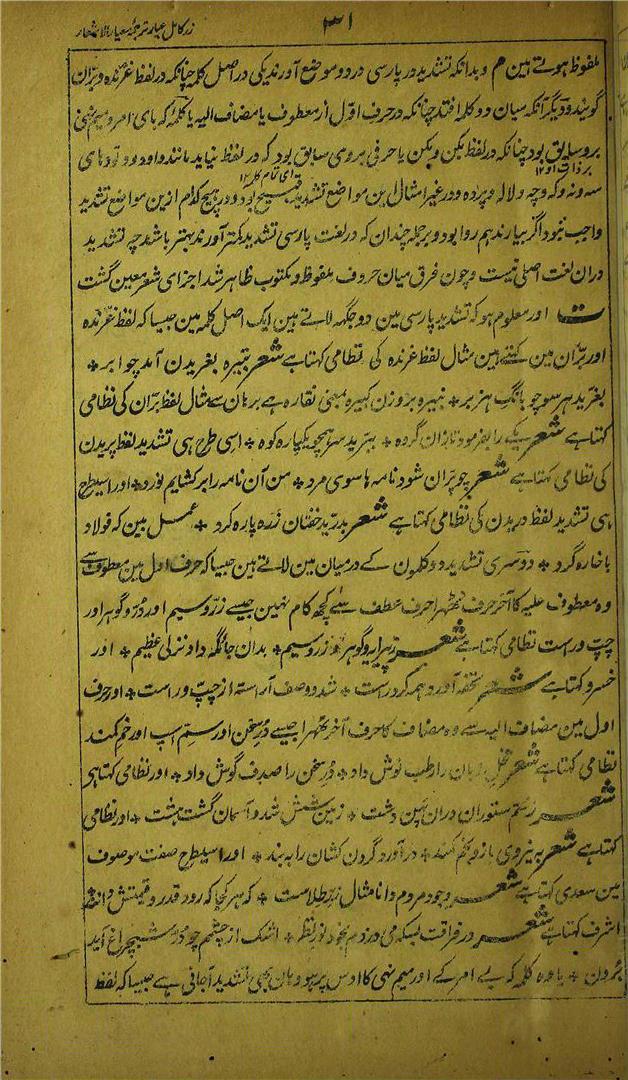 ۳۱
زر کامل عیار ترجمہ معیار الاشعار
ملفوظ ہوتے ہین م و بدانکہ تشدید در پارسی در دو موضع آورند یکی در اصل کلمہ چنانکہ در لفظ غرندہ و بران
گویند و دیگر آنکہ میان دو کلمہ افتد چنانکہ در حرف اول از معطوف یا مضاف الیہ یا کلمہ کہ بای امر و میم نہی
برو سابق بود چنانکہ در لفظ بکن و مکن یا حرفی بر وی سابق بود کہ در لفظ نیاید مانند واو دو و تو و ہای
سہ و نہ و کہ و چہ و لالہ و پردہ و در غیر امثال این مواضع تشدید قبیح بود و در ہیچ کدام ازین مواضع تشدید
واجب نبود اگر بیارند ہم روا بود و بر جملہ چندان کہ در لغت پارسی تشدید کمتر آورند بہتر باشد چہ تشدید
دران لغت اصلی نیست و چون فرق میان حروف ملفوظ و مکتوب ظاہر شد اجزای شعر معین گشت
ت اور معلوم ہو کہ تشدید پارسی مین دو جگہہ لاتے ہین ایک اصل کلمہ مین جیسا کہ لفظ غرّندہ
اور برّان مین کہتے ہین مثال لفظ غرندہ کی نظامی کہتا ہے شعر تبیرہ بغریدن آمد چو ابر *
بغرید ہر سو چو بانگ ہزبر * تبیرہ بر وزن کبیرہ بمعنی نقارہ ہے برہان سے مثال لفظ برّان کی نظامی
کہتا ہے شعر یکی را بفرمود تا زان گروہ * ببرید سر ہمچو یکپارہ کوہ * اسی طرح ہی تشدید لفظ پریدن
کی نظامی کہتا ہے شعر چو پران شود نامہ ہا سوی مرد * من آن نامہ را بر کشایم نورد * اور اسیطرح
ہی تشدید لفظ دریدن کی نظامی کہتا ہے شعر بدرّید خفتان زرہ پارہ کرد * عمل بین کہ فولاد
با خارہ کرد * دوسری تشدید دو کلمون کے درمیان مین لاتے ہین جیسا کہ حرف اول مین معطوف سے
وہ معطوف علیہ کا آخر حرف ٹھہرا حرف عطف سے کچھ کام نہین جیسے زرّ و سیم اور درّ و گوہر اور
چپّ و راست نظامی کہتا ہے شعر ز پیرایہ و گوہر و زرّ و سیم * بدان جانگہ داد نزلی عظیم * اور
خسرو کہتا ہے شعر تحفہ آورد ہمہ کرد راست * شد دو صف آراستہ از چپّ و راست * اور حرف
اول مین مضاف الیہ سے وہ مضاف کا حرف آخر ٹھہرا جیسے درّ سخن اور سمّ اسپ اور خمّ کمند
نظامی کہتا ہے شعر نخل زبان را رطب نوش داد * درّ سخن را صدف گوش داد * اور نظامی کہتا ہی
شعر ز سمّ ستوران دران پہن دشت * زمین شش شد و آسمان گشت ہشت * اور نظامی
کہتا ہے شعر بہ نیروی بازو بخمّ کمند * در آورد گردن کشان را بہ بند * اور اسیطرح صفت موصوف
مین سعدی کہتا ہے شعر وجود مردم دانا مثال زرّ طلاست * کہ ہر کجا کہ رود قدر و قیمتش دانند
اشرف کہتا ہے شعر در فراقت بسکہ می دزدم بخود نور نظر * اشک از چشمم چو درّ شبچراغ آید
برون * یا وہ کلمہ کہ بے امر کے اور میم نہی کا اوس پر ہو وہان بھی تشدید آجاتی ہے جیسا کہ لفظ